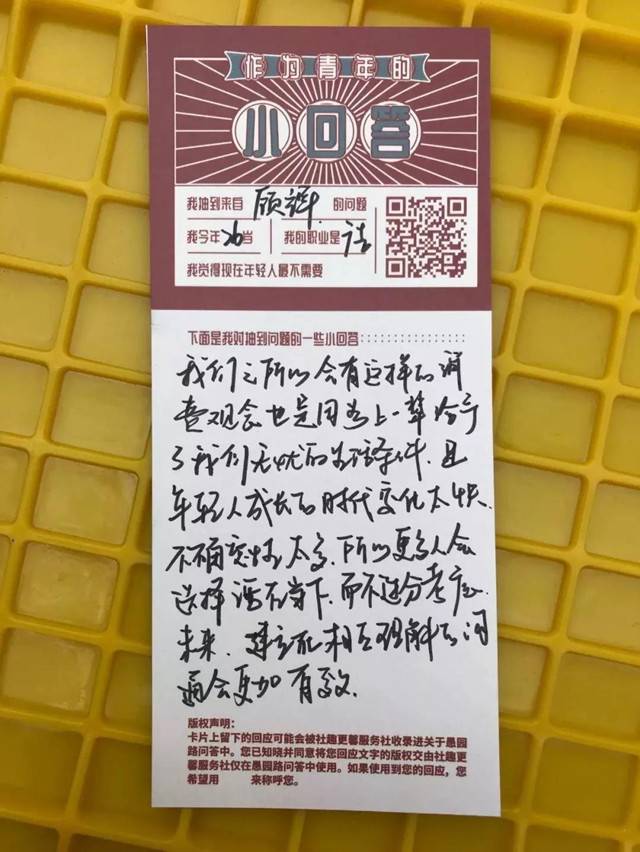 作为青年的
小回答
我抽到来自 顾辉 的问题
我今年26岁 我的职业是
我觉得现在年轻人最不需要
下面是我对抽到问题的一些小回答:
我们之所以会有这样的消
费观念也是因为上一辈给予
了我们无忧的生活条件.且
年轻人成长的时代变化太快.
不确定性太多.所以更多人会
选择活在当下.而不过分考虑
未来.建立在相互理解的沟
通会更加有效.
版权声明:
卡片上留下的回应可能会被社趣更馨服务社收录进关于愚园
路问答中。您已知晓并同意将您回应文字的版权交由社趣更
馨服务社仅在愚园路问答中使用。如果使用到您的回应，您
希望用 来称呼您。